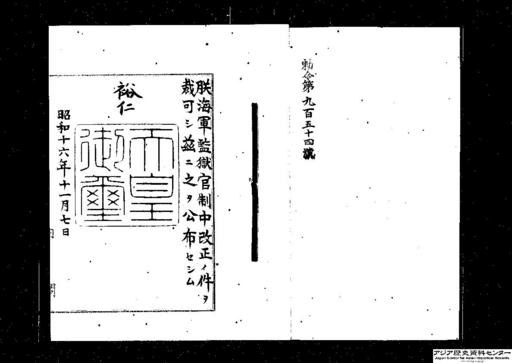 勅令第九百五十四號
朕海軍監獄官制中改正ノ件ヲ
裁可シ茲ニ之ヲ公布セシム
裕仁
天皇
御璽
昭和十六年十一月七日
アジア歴史資料センター
Japan Center for Asian Historical Records